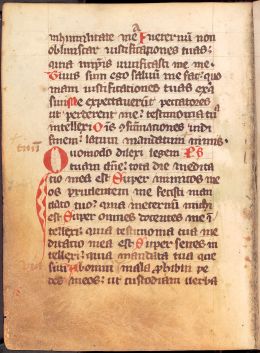 in humilitate me In eternum non
obliuiscar iustificationes tuas:
quia in ipīs uiuificasti me me
Tuus sum ego saluum me fac: quo
niam iustificationes tuas exq̄
siui Me expectauerūt peccatores
ut perderent me: testimonia tua
intellexi Oīs ɔsūmationis uidi
finem: latum mandatum nimis
Quomodo dilexi legem
tuam dn̄e: tota die medita
tio mea est Super inimicos me
os prudentem me fecisti man
dato tuo: quia in eternū michi
est Super omnes docentes me ī
tellexi: quia testimonia tua me
ditatio mea est Super senes in
tellexi: quia mandata tua que
siui Ab omni uia mala ꝓhibui pe
des meos: ut custodiam uerba